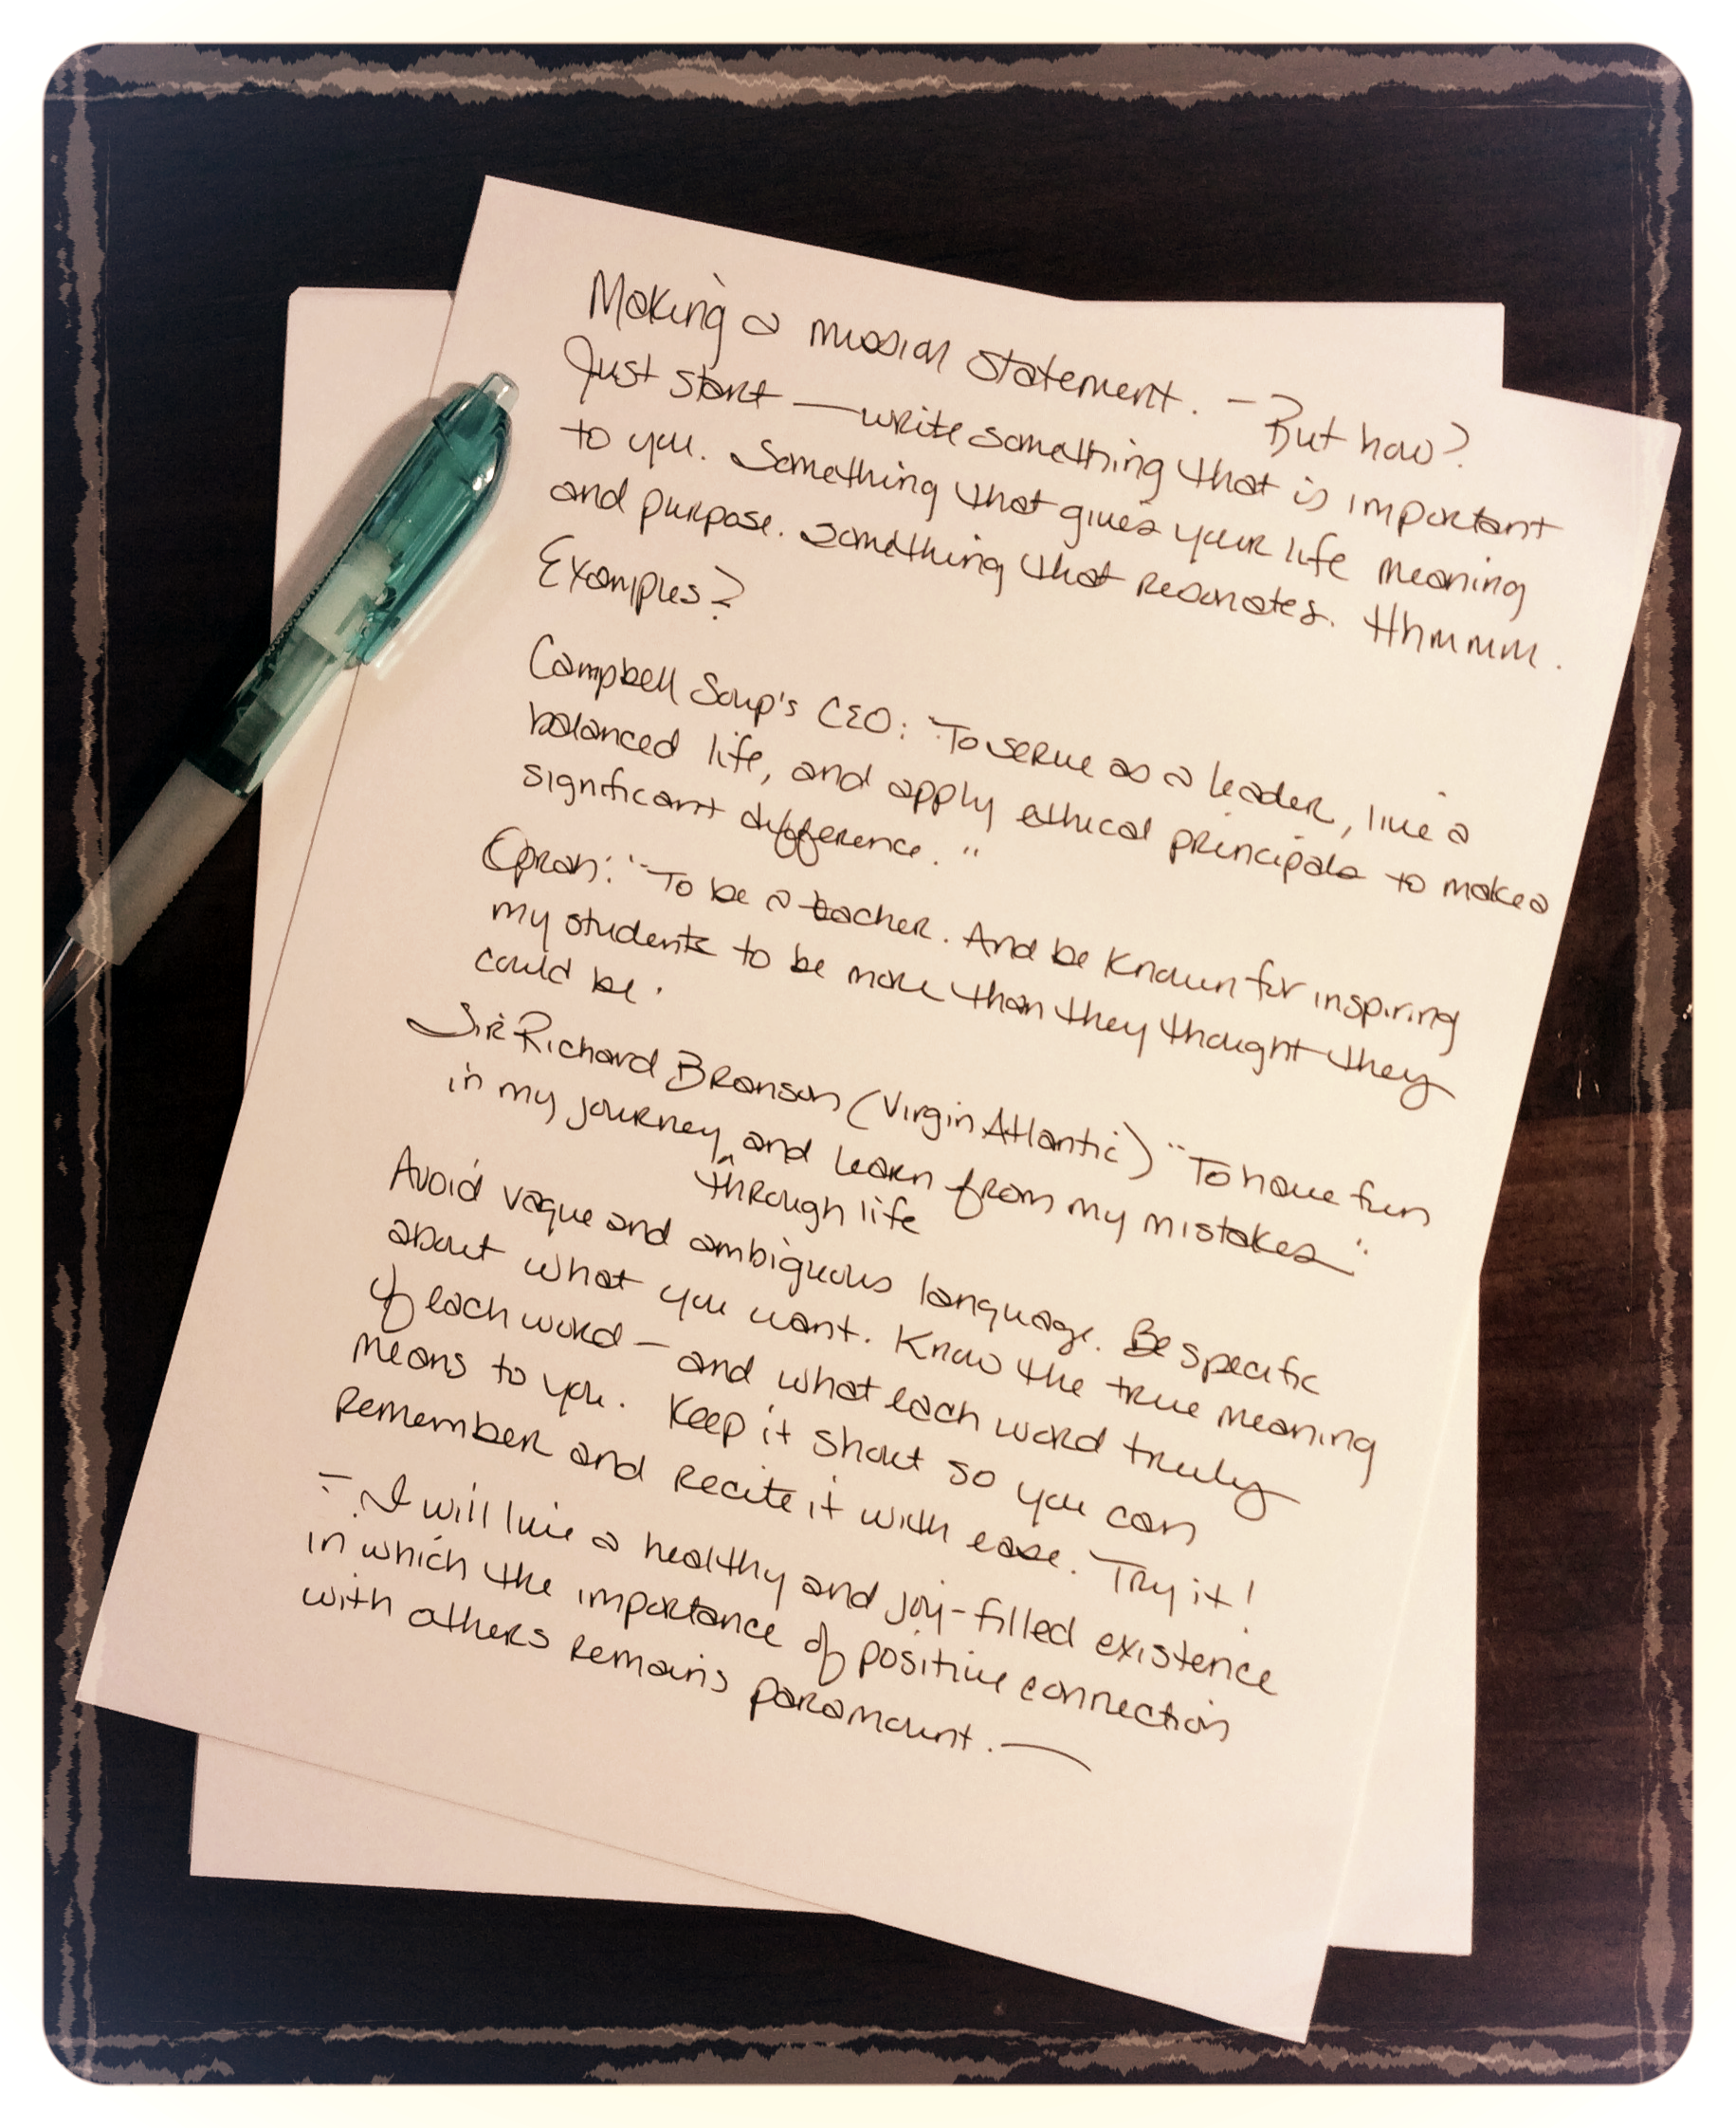 Making a mission statement. - But how?
Just start — write something that is important
to you. Something that gives your life meaning
and purpose. Something that resonates. Hhmmm.
Examples?
Campbell Soup's CEO: "To serve as a leader, live a
balanced life, and apply ethical principals to make a
significant difference."
Oprah: "To be a teacher. And be known for inspiring
my students to be more than they thought they
could be.
Sir Richard Branson (Virgin Atlantic) "To have fun
in my journey ^ and learn from my mistakes"
through life
Avoid vague and ambiguous language. Be specific
about what you want. Know the true meaning
of each word - and what each word truly
means to you. Keep it short so you can
remember and recite it with ease. Try it!
- I will live a healthy and joy-filled existence
in which the importance of positive connection
with others remains paramount. —